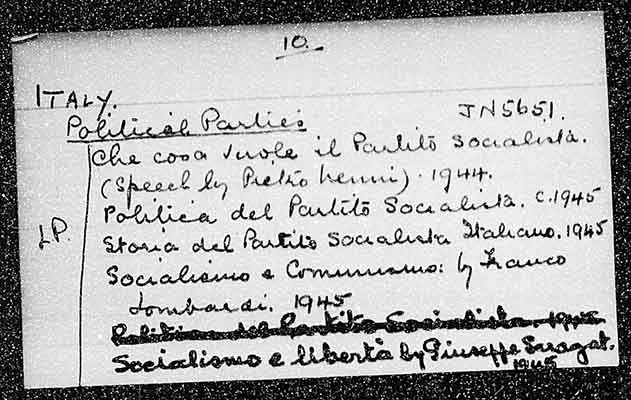 10.
ITALY.
Political Parties
JN5651.
Che cosa vuole il Partito Socialista.
(Speech by Pietro Nenni). 1944.
Politica del Partito Socialista. c.1945
LP.
Storia del Partito Socialista Italiano. 1945
Socialismo e Comunismo: by Franco
Lombardi. 1945
Politica del Partito Socialista. 1945
Socialismo e libertà by Giuseppe Saragat.
1945